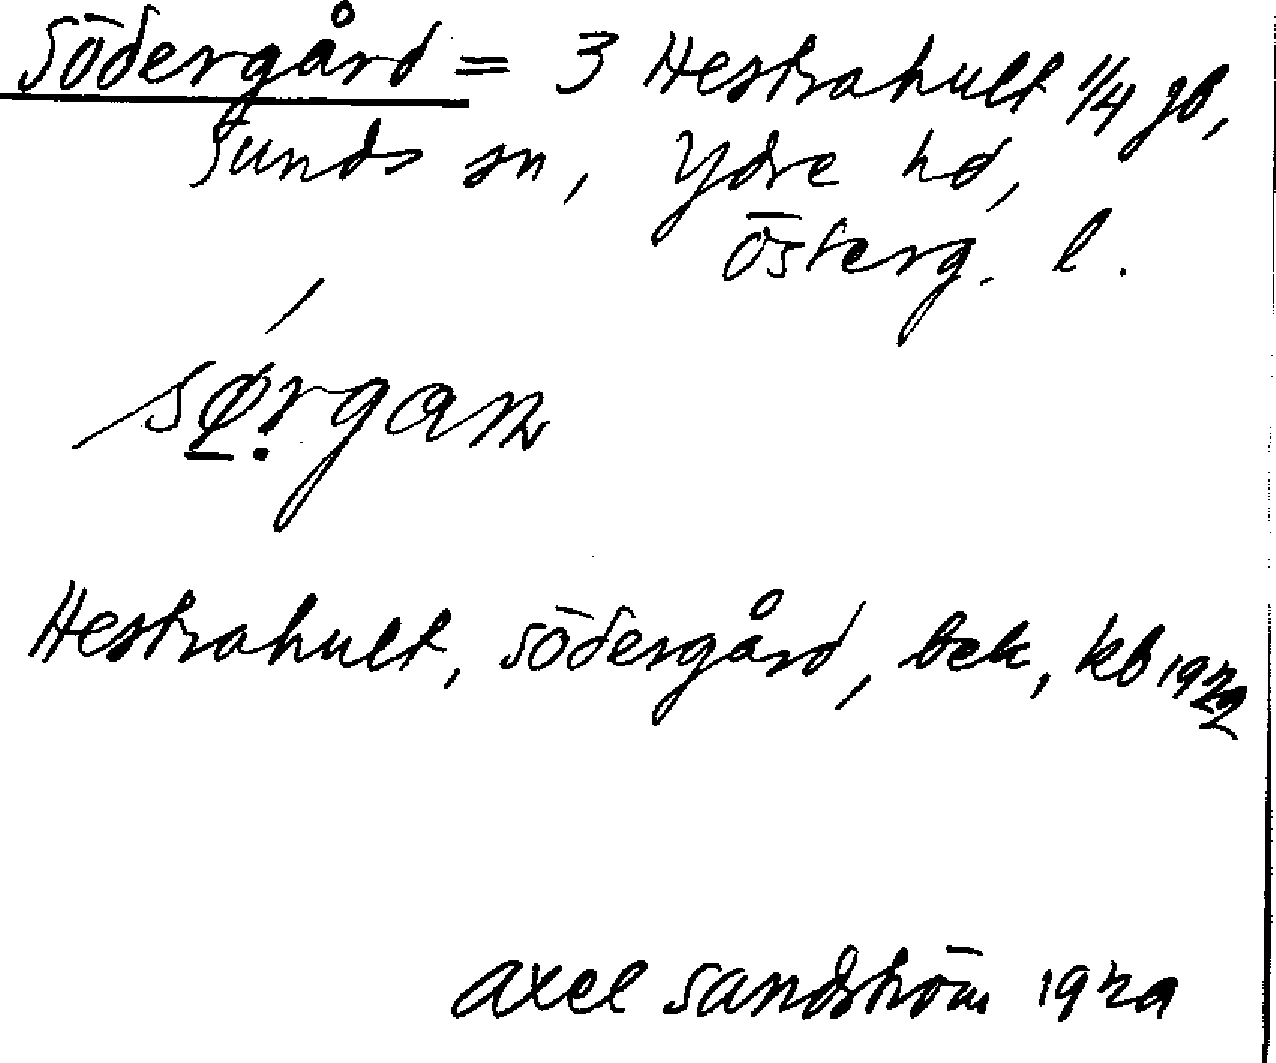 Södergård = 3 Hestrahult 1/4 gb,
Sunds sn, Ydre hd,
Österg. l.
sørgan
Hestrahult, Södergård, bek, kb 1922
Axel Sandström 1929